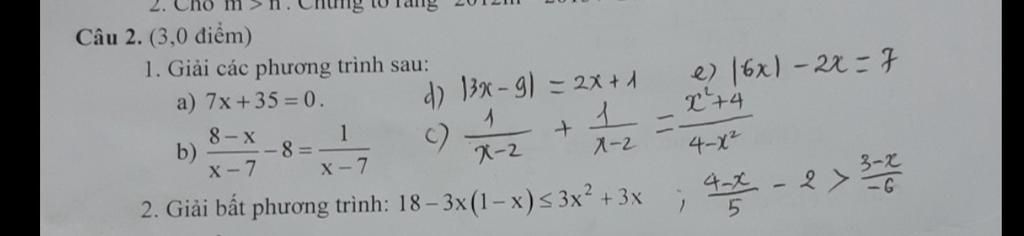 2. Cho m > n. Chứng tỏ rằng
Câu 2. (3,0 điểm)
1. Giải các phương trình sau:
a) 7x + 35 = 0.
d) |3x - 9| = 2x + 1
e) |6x| - 2x = 7
b) (8 - x)/(x - 7) - 8 = 1/(x - 7)
c) 1/(x-2) + 1/(x-2) = (x² + 4)/(4 - x²)
2. Giải bất phương trình: 18 - 3x(1 - x) ≤ 3x² + 3x ; (4-x)/5 - 2 > (3-x)/-6